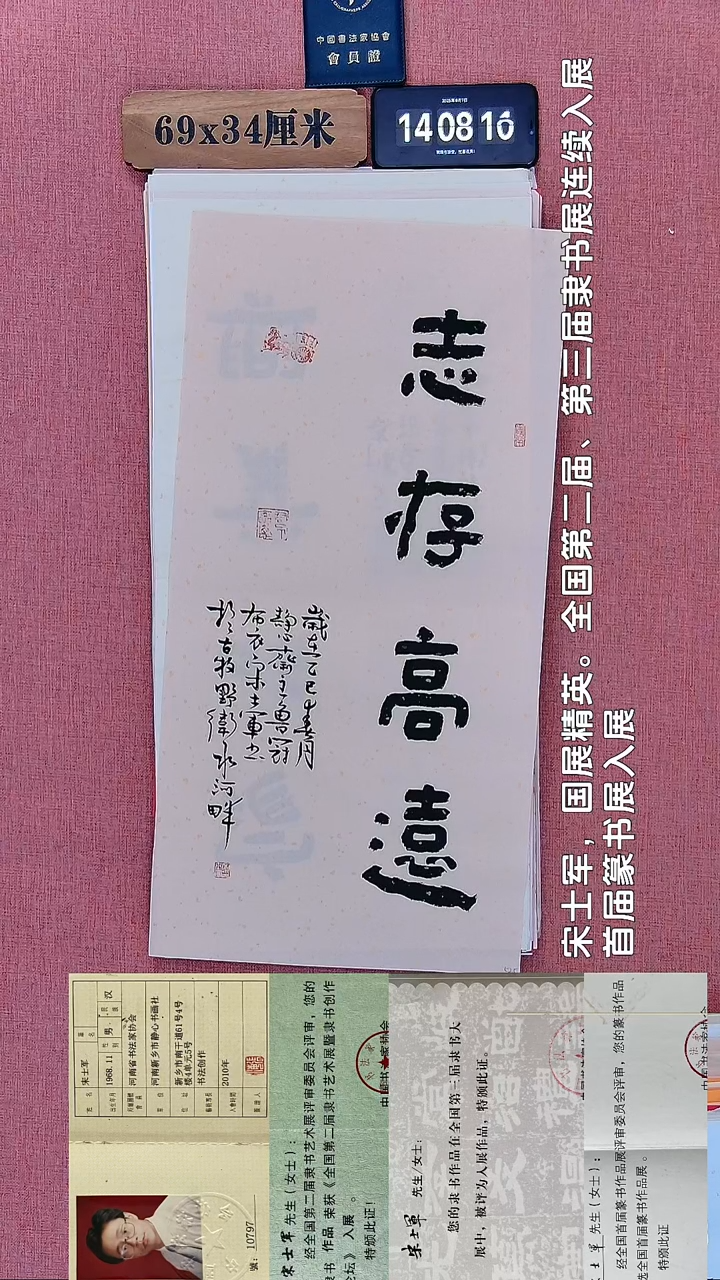 中國書法家協會
會員證
69x34厘米
14 08 10
志存高遠
歲在乙巳春月
静心齋主
布衣宋士軍書
於古牧野衛水河畔
宋士军，国展精英。全国第二届、第三届隶书展连续入展
首届篆书展入展
姓名 宋士军
性别 男 民族 汉
出生年月 1968.11
河南省书法家协会
河南新乡市静心书画社
新乡市南干道61号4号
楼4单元5号
书法创作
2010年
號：10797
宋士軍 先生（女士）：
经全国第二届隶书艺术展评审委员会评审，您的
隶书 作品 荣获《全国第二届隶书艺术展暨隶书创作
论坛》 入展 。
特颁此证！
宋士軍 先生/女士：
您的隶书作品在全国第三届隶书大
展中，被评为入展作品，特颁此证。
士军 先生（女士）：
经全国首届篆书作品展评审委员会评审，您的篆书作品
选全国首届篆书作品展 。
特颁此证